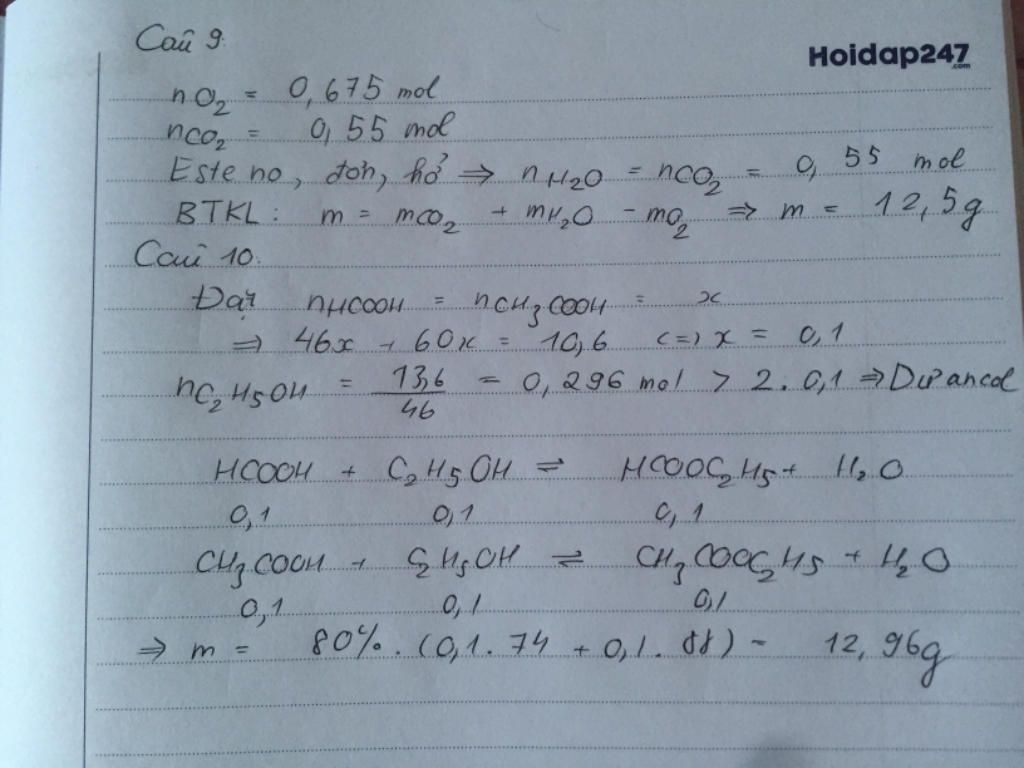 Câu 9.
Hoidap247
.com
nO₂ = 0,675 mol
nCO₂ = 0,55 mol
Este no, đơn, hở ⇒ nH₂O = nCO₂ = 0,55 mol
BTKL: m = mCO₂ + mH₂O - mO₂ ⇒ m = 12,5g
Câu 10.
Đặt nHCOOH = nCH₃COOH = x
⇒ 46x + 60x = 10,6 <=> x = 0,1
nC₂H₅OH = 13,6/46 = 0,296 mol > 2.0,1 ⇒ Dư ancol
HCOOH + C₂H₅OH ⇌ HCOOC₂H₅ + H₂O
0,1 0,1 0,1
CH₃COOH + C₂H₅OH ⇌ CH₃COOC₂H₅ + H₂O
0,1 0,1 0,1
⇒ m = 80%.(0,1.74 + 0,1.88) = 12,96g